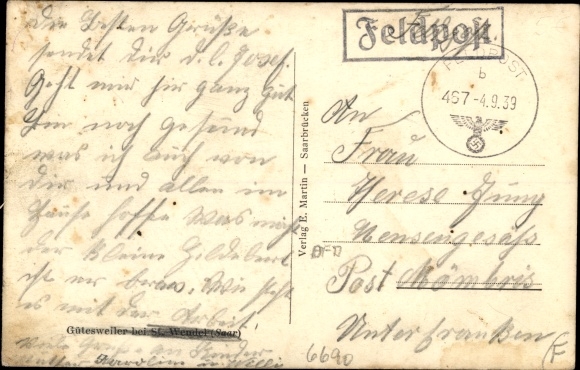 Die besten Grüße
sendet dir d. l. Josef.
Geht mir hir ganz gut
bin noch gesund
was ich auch von
dir und allen im
Hause hoffe was macht
der kleine Hildebert
ist er brav. Wie steht
es mit der Arbeit
Gütesweiler bei St. Wendel (Saar)
Viele Grüße an Kinder
Karolin u. Willi
Verlag E. Martin — Saarbrücken
Feldpost
FELDPOST
b
467 -4.9.39
An
Frau
Therese Jung
Mensengesäss
Post Mömbris
Unterfranken
6690